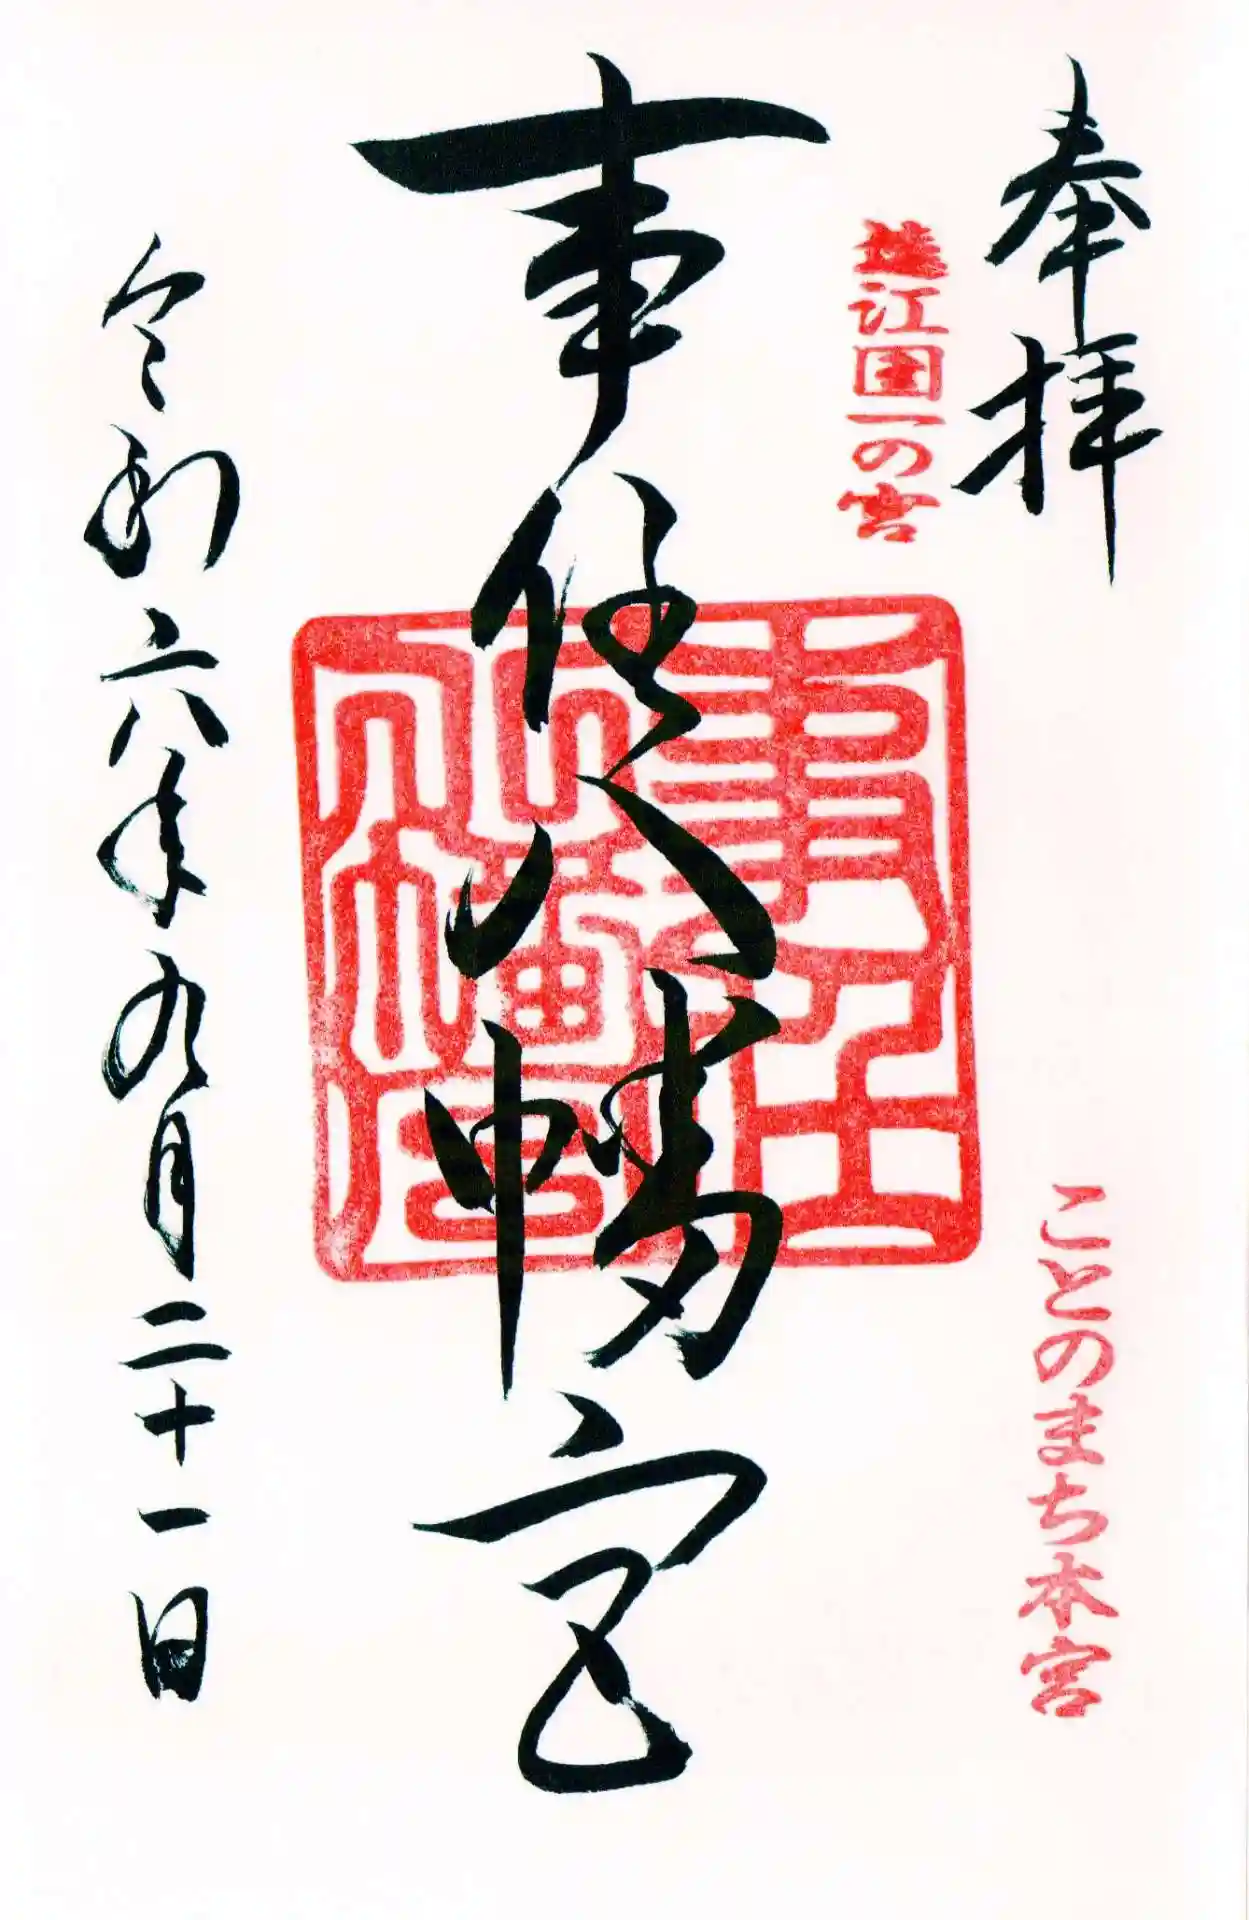 奉拝
ことのまち本宮
遠江国一の宮
事任八幡宮
事任八幡宮
令和六年九月二十一日